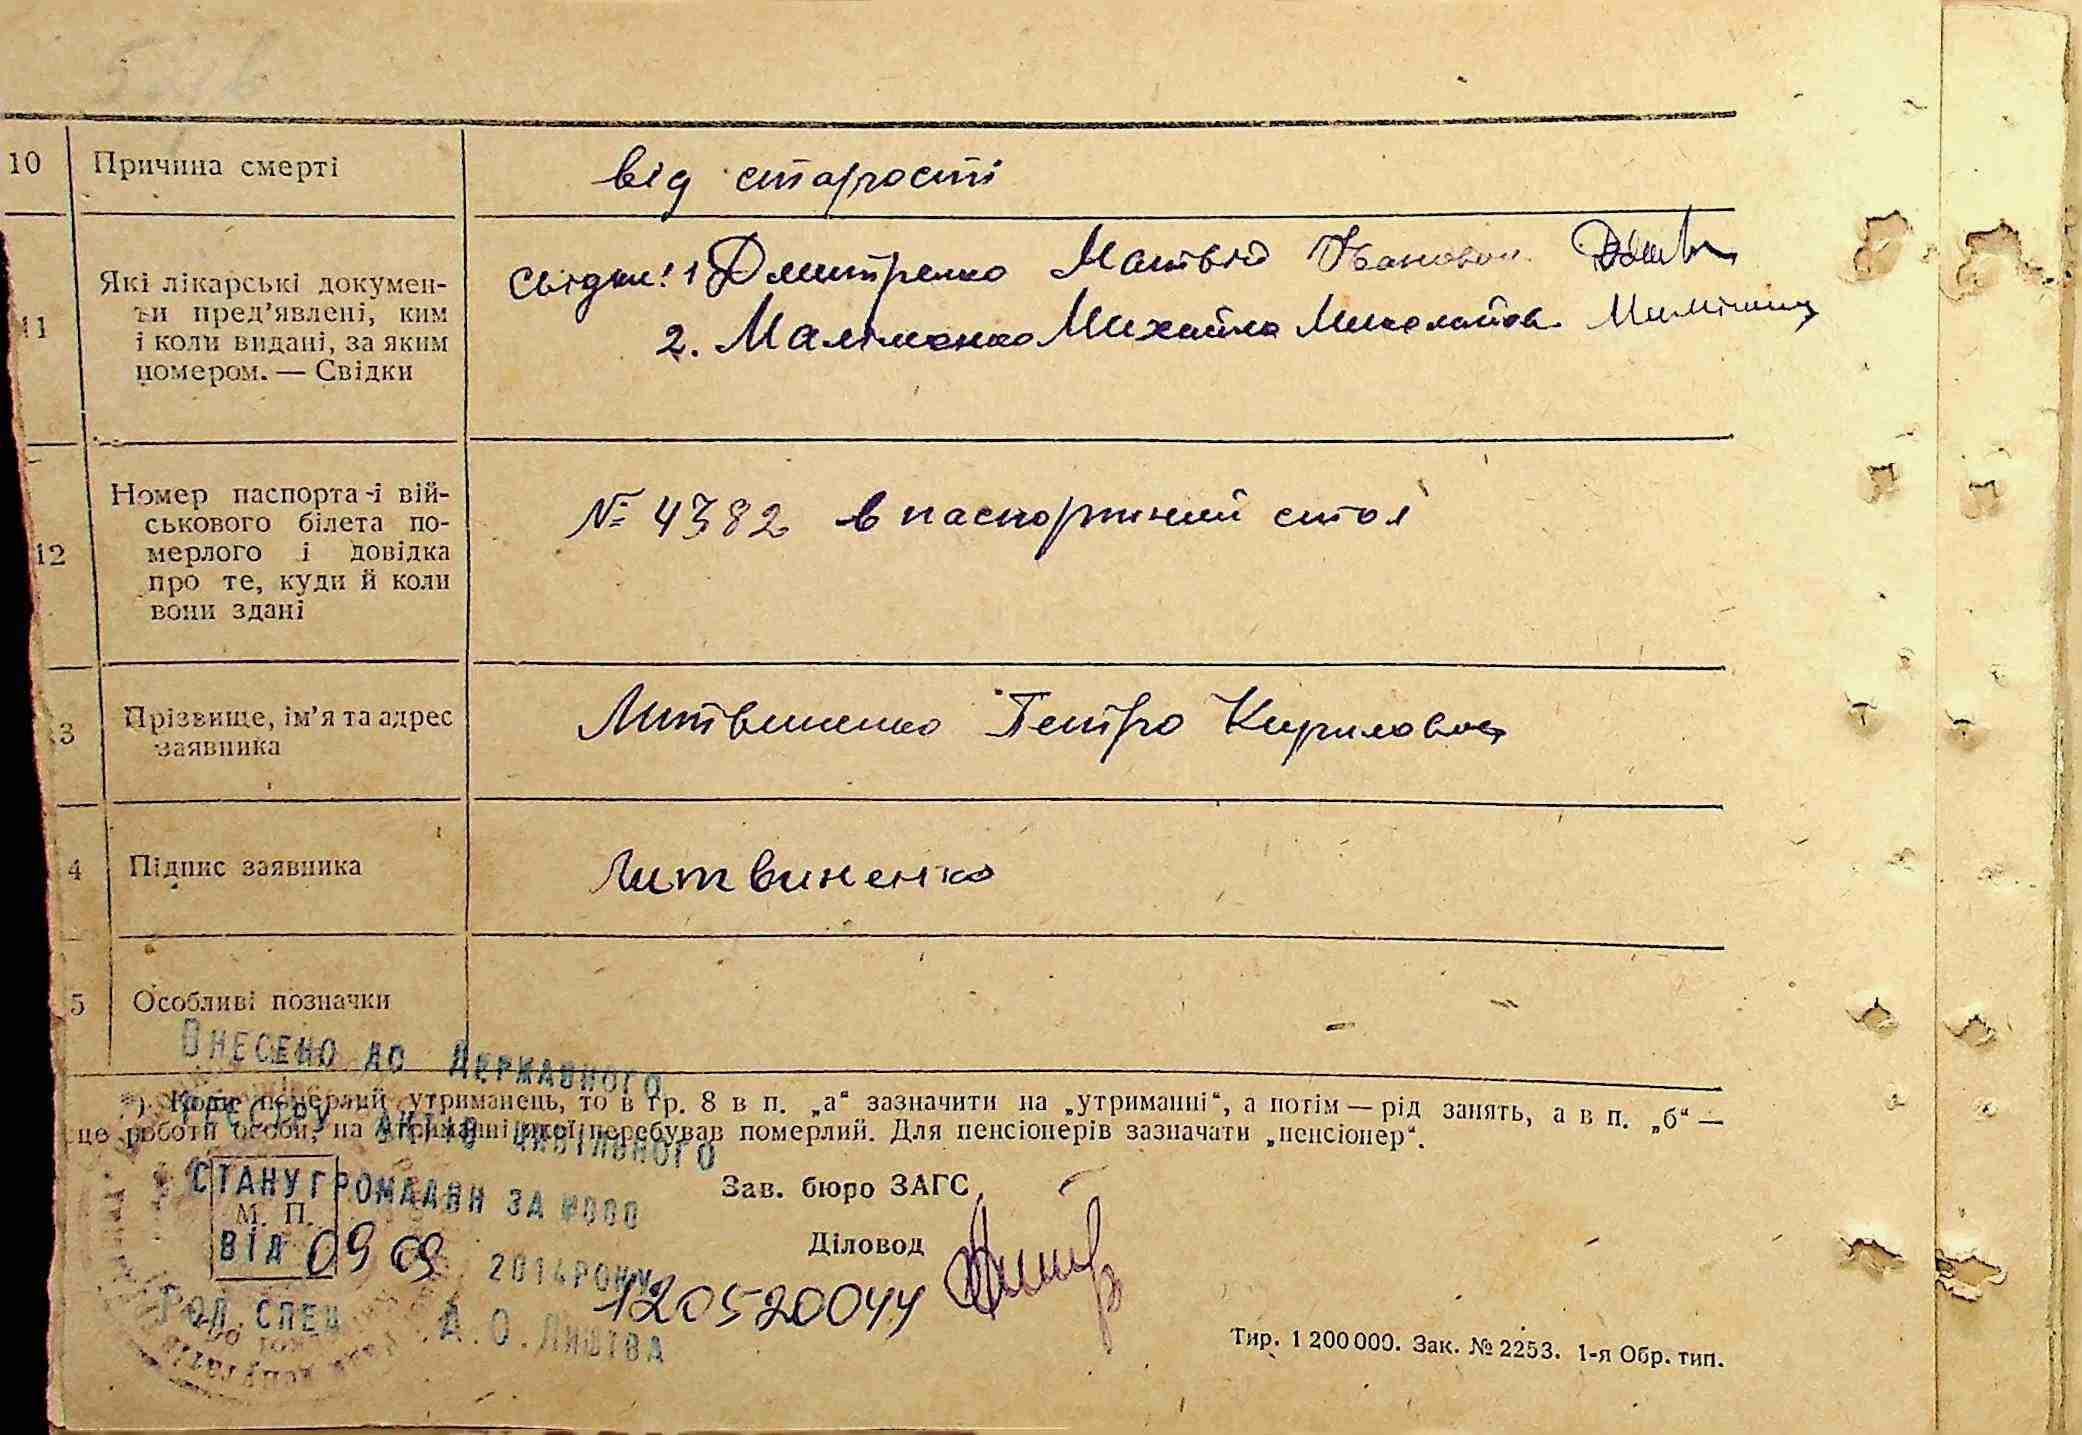 10 Причина смерті від старости
11 Які лікарські докумен-
ти пред'явлені, ким
і коли видані, за яким
номером. — Свідки
Свідки: 1 Дмитренко Матвій Іванович
2. Маліменко Михайло Миколайов.
12 Номер паспорта і вій-
ськового білета по-
мерлого і довідка
про те, куди й коли
вони здані
№ 4382 в паспортний стол
3 Прізвище, ім'я та адрес
заявника
Литвиненко Петро Кирилович
4 Підпис заявника Литвиненко
5 Особливі позначки
ВНЕСЕНО ДО ДЕРЖАВНОГО
РЕЄСТРУ АКТІВ ЦИВІЛЬНОГО
СТАНУ ГРОМАДЯН ЗА №000
ВІД 09 09 2014РОКУ
120520044
ГОЛ.СПЕЦ А.О.ЛИШТВА
) Коли померлий утриманець, то в гр. 8 в п. „а“ зазначити на „утриманні“, а потім — рід занять, а в п. „б“ —
це роботи особи, на утриманні якої перебував померлий. Для пенсіонерів зазначати „пенсіонер“.
М. П.
Зав. бюро ЗАГС
Діловод
Тир. 1 200 000. Зак. № 2253. 1-я Обр. тип.